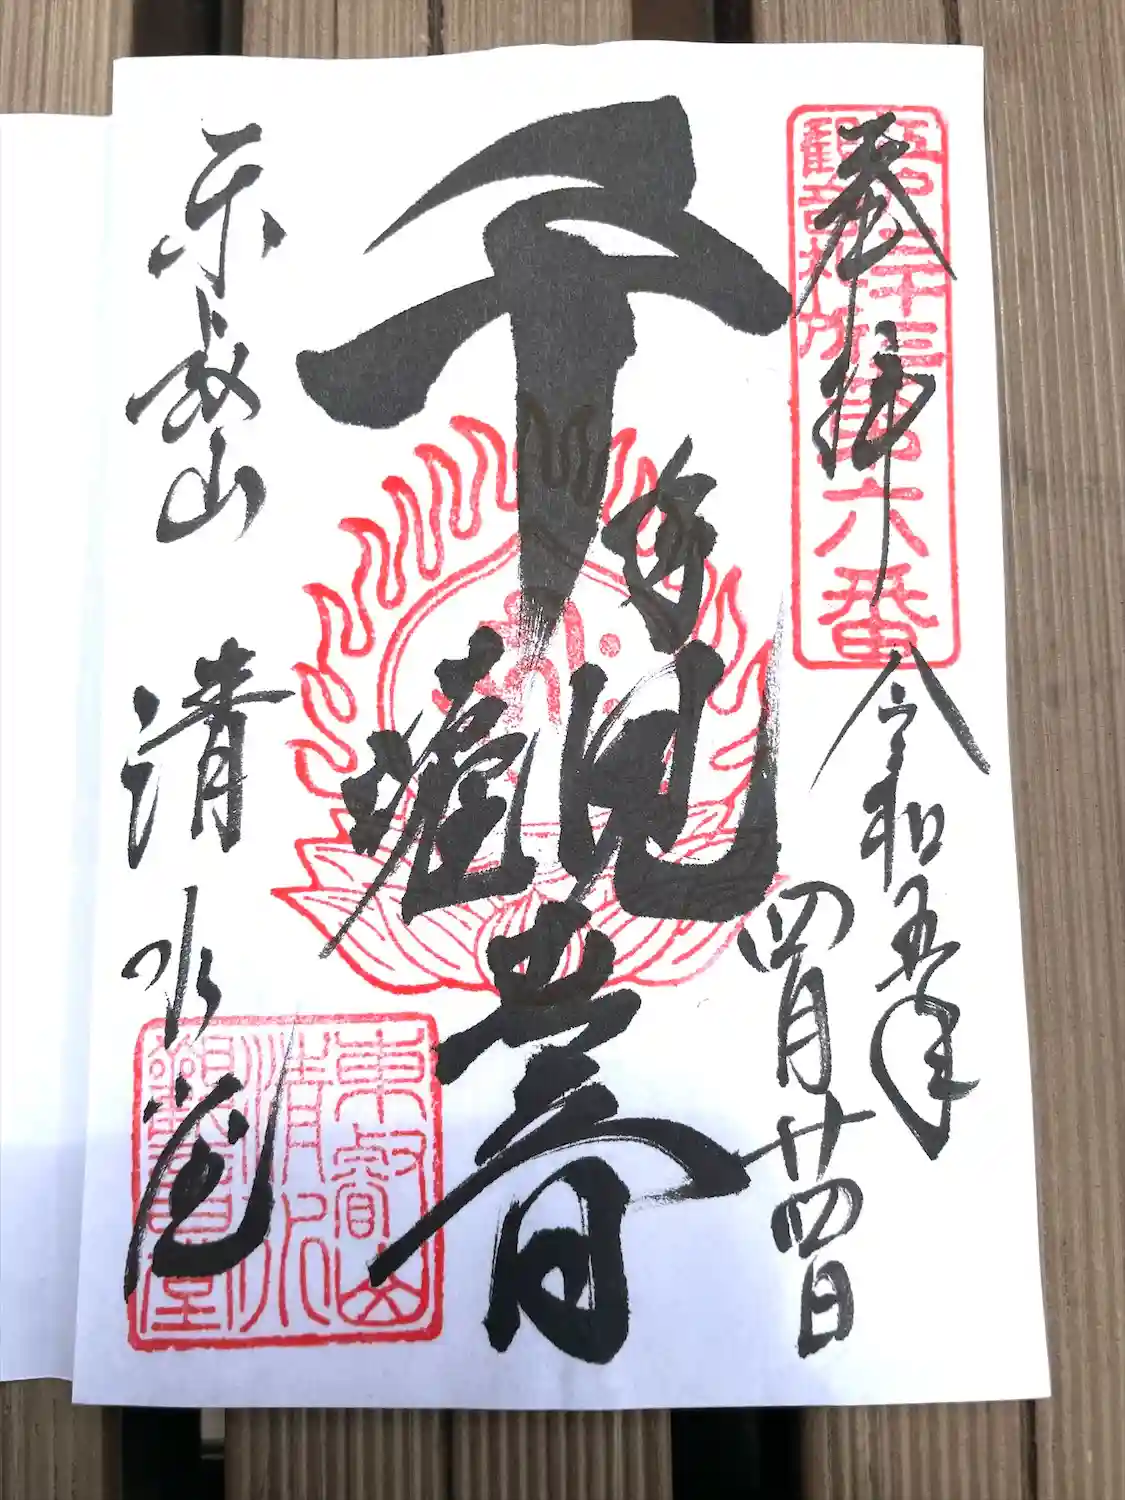 奉拝
江戸三十三
観音札所
第六番
令和五年
四月廿四日
千手観世音
東叡山 清水堂
東叡山
清水
觀音堂